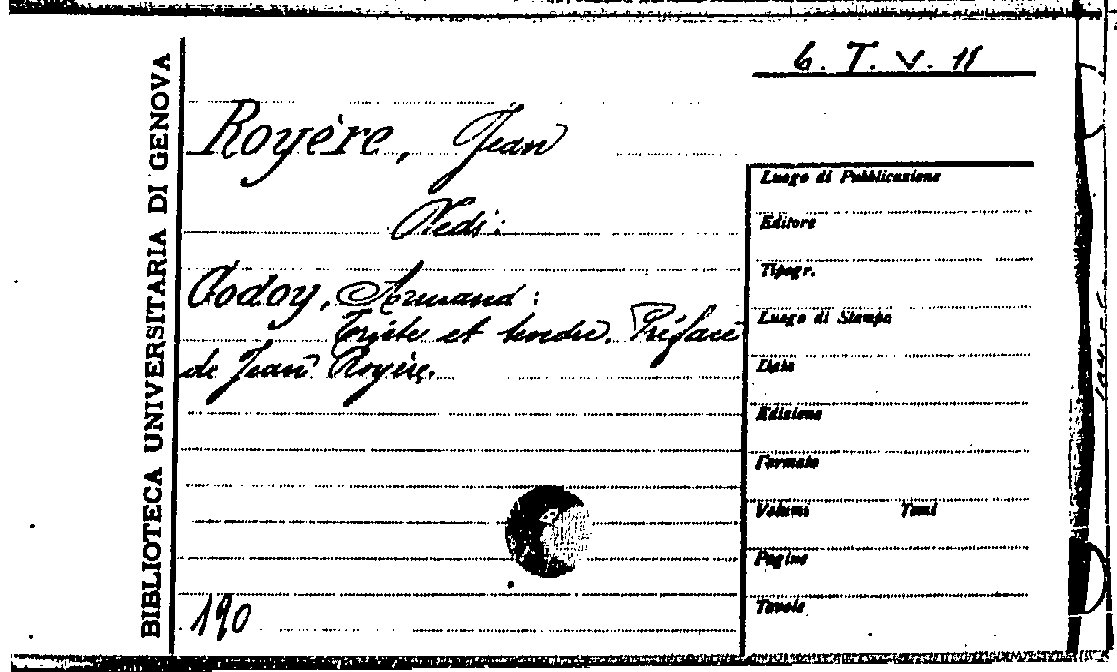 6. T. V. 11
BIBLIOTECA UNIVERSITARIA DI GENOVA
Royère, Jean
Vedi:
Godoy, Armand:
Triste et tendre. Préface
de Jean Royère.
190
Luogo di Pubblicazione
Editore
Tipogr.
Luogo di Stampa
Data
Edizione
Formato
Volumi Tomi
Pagine
Tavole